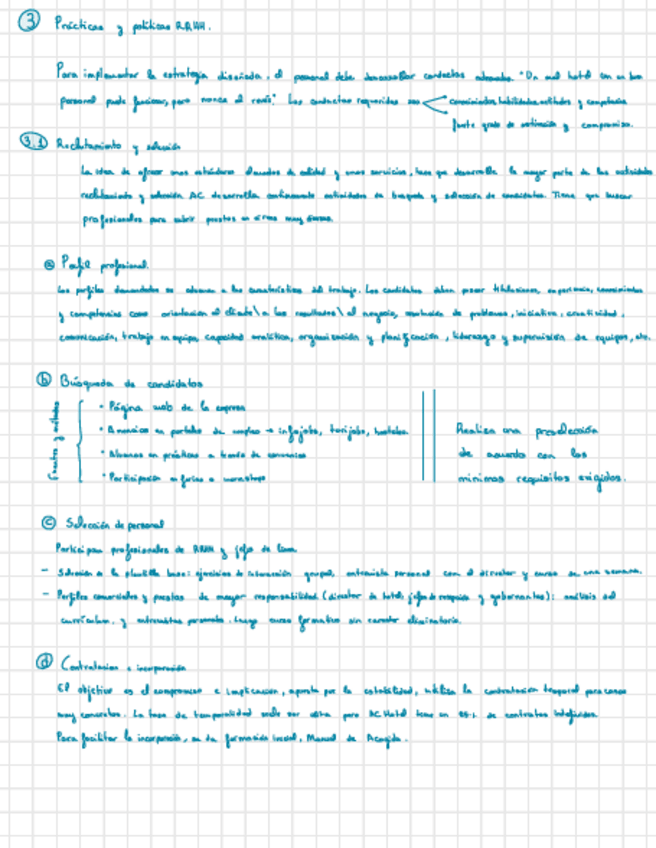 ③ Prácticas y políticas RRHH.
Para implementar la estrategia diseñada, el personal debe desarrollar conductas adecuadas. "Un mal hotel con un buen
personal puede funcionar, pero nunca al revés". Las conductas requeridas son < conocimientos, habilidades, actitudes y competencias
fuerte grado de motivación y compromiso.
3.1 Reclutamiento y selección
La idea de ofrecer unos estándares elevados de calidad y unos servicios, hace que desarrolle la mayor parte de las actividades
reclutamiento y selección AC desarrolla continuamente actividades de búsqueda y selección de candidatos. Tiene que buscar
profesionales para cubrir puestos en áreas muy diversas.
ⓐ Perfil profesional.
Los perfiles demandados se adecuan a las características del trabajo. Los candidatos deben poseer titulaciones, experiencia, conocimientos
y competencias como orientación al cliente\ a los resultados\ al negocio, resolución de problemas, iniciativa, creatividad,
comunicación, trabajo en equipo, capacidad analítica, organización y planificación, liderazgo y supervisión de equipos, etc.
ⓑ Búsqueda de candidatos
Fuentes y métodos
· Página web de la empresa
· Anuncios en portales de empleo → infojobs, turijobs,
· Alumnos en prácticas a través de convenios
· Participación en foros o workshops
Realiza una preselección
de acuerdo con los
mínimos requisitos exigidos.
ⓒ Selección de personal
Participan profesionales de RRHH y jefes de línea
- Selección a la plantilla base: ejercicios de interacción grupal, entrevista personal con el director y curso de una semana.
- Perfiles comerciales y puestos de mayor responsabilidad (director de hotel, jefes de recepción y gobernantes): análisis del
currículum, y entrevistas personales. Luego curso formativo sin carácter eliminatorio.
ⓓ Contratación e incorporación
El objetivo es el compromiso e implicación, apuesta por la estabilidad, utiliza la contratación temporal para casos
muy concretos. La tasa de temporalidad suele ser alta pero AC Hotel tiene un % de contratos indefinidos.
Para facilitar la incorporación, se da formación inicial, Manual de Acogida.